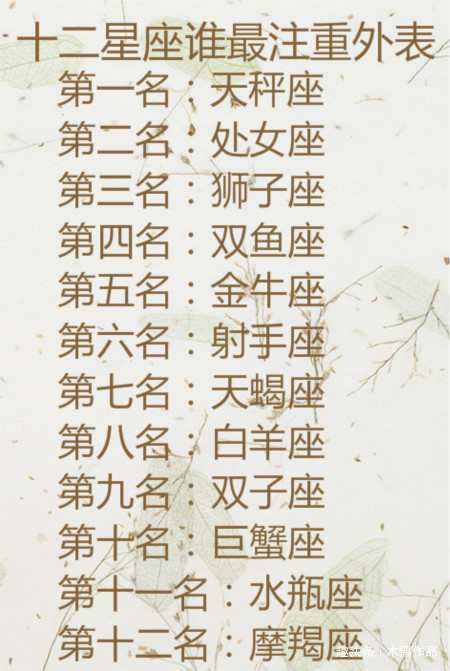 十二星座谁最注重外表
第一名：天秤座
第二名：处女座
第三名：狮子座
第四名：双鱼座
第五名：金牛座
第六名：射手座
第七名：天蝎座
第八名：白羊座
第九名：双子座
第十名：巨蟹座
第十一名：水瓶座
第十二名：摩羯座